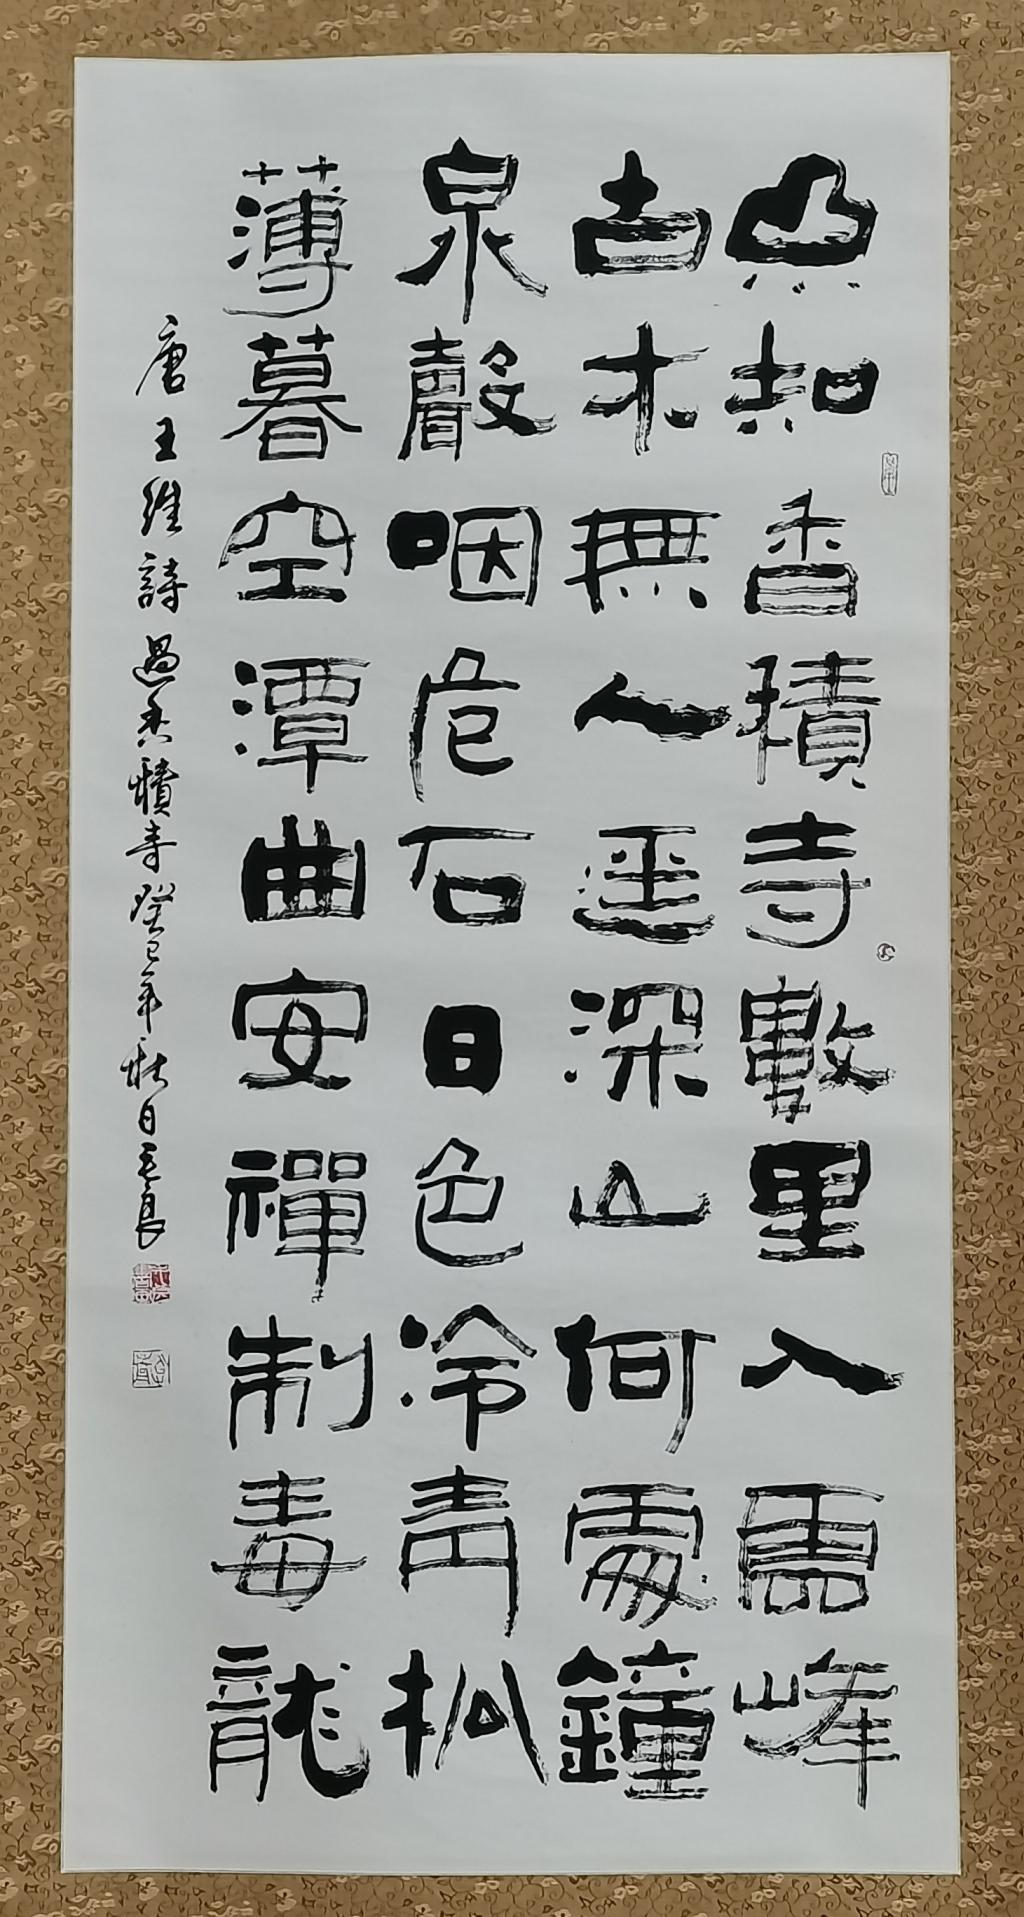 不知香積寺數里入雲峰
古木無人逕深山何處鐘
泉聲咽危石日色冷青松
薄暮空潭曲安禪制毒龍
唐王維詩過香積寺癸巳年秋日